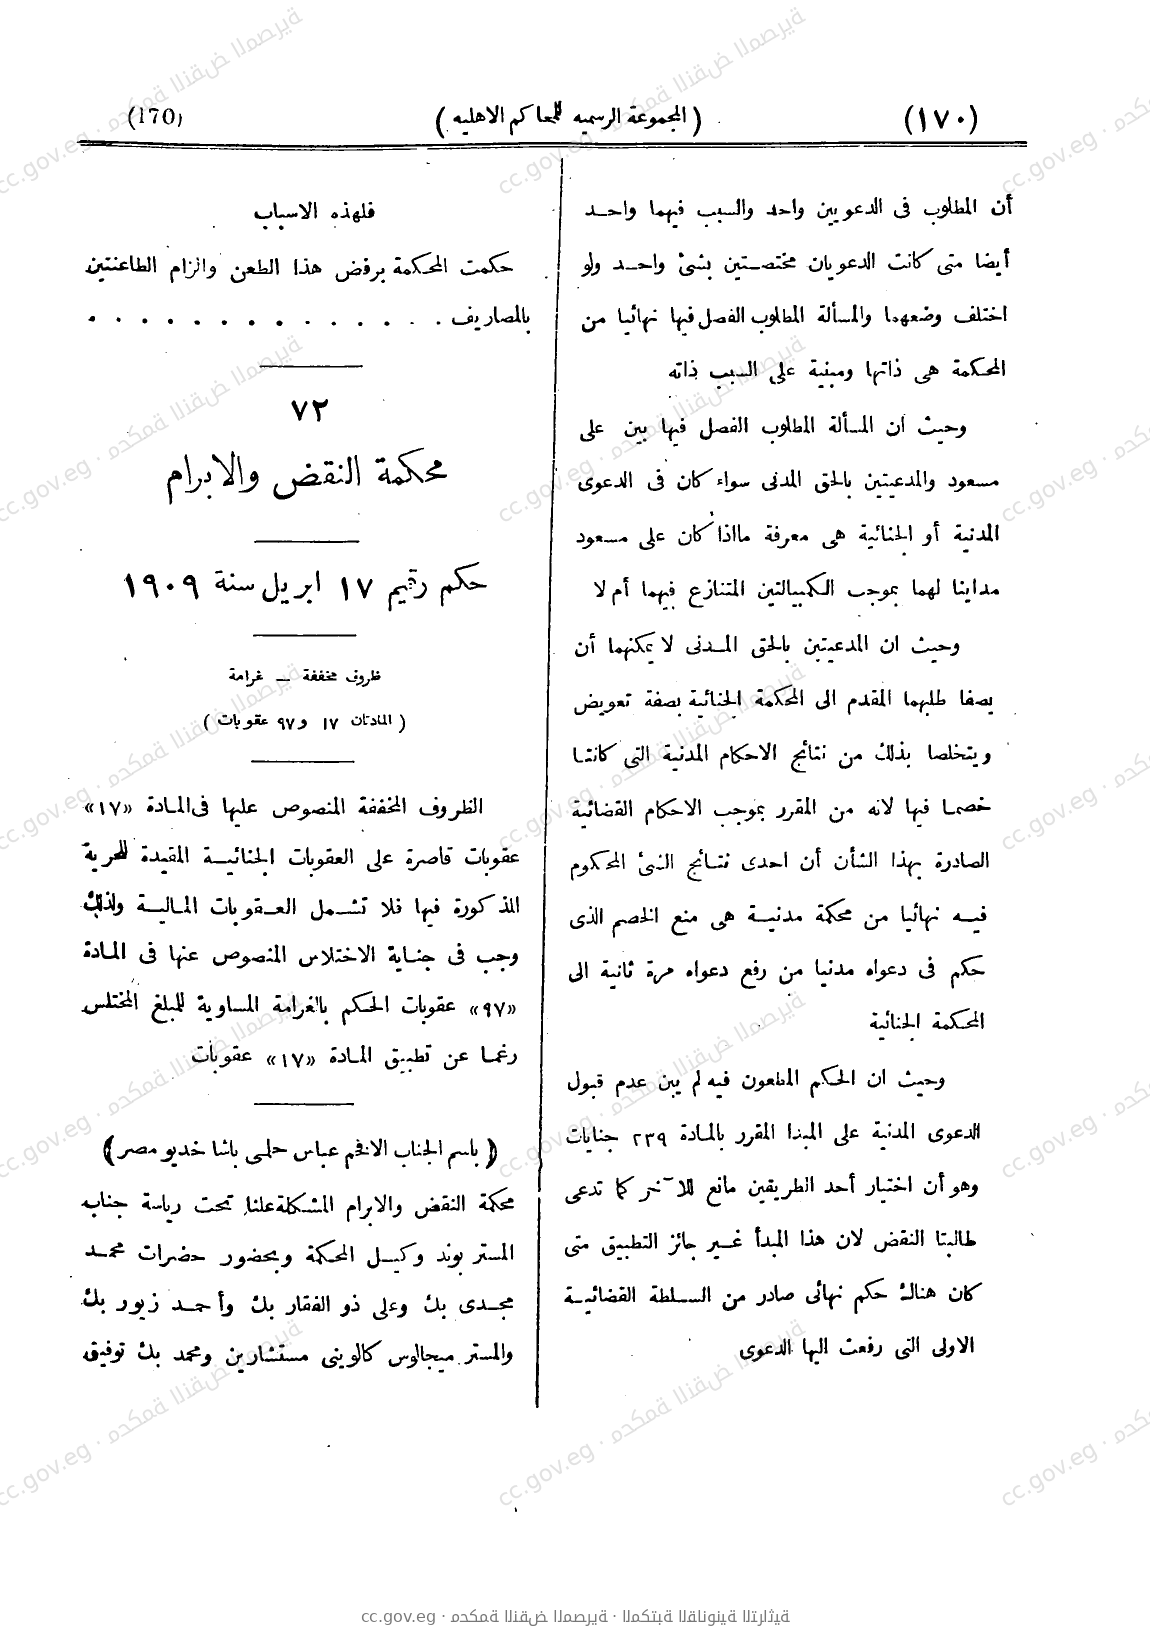 (١٧٠)
(المجموعة الرسميه للمحاكم الاهليه)
(170)
أن المطلوب فى الدعويين واحد والسبب فيهما واحد
أيضا متى كانت الدعويان مختصتين بشئ واحد ولو
اختلف وضعهما والمسألة المطلوب الفصل فيها نهائيا من
المحكمة هى ذاتها ومبنية على السبب ذاته
وحيث ان المسألة المطلوب الفصل فيها بين على
مسعود والمدعيتين بالحق المدنى سواء كان فى الدعوى
المدنية أو الجنائية هى معرفة مااذا كان على مسعود
مداينا لهما بموجب الكمبيالتين المتنازع فيهما أم لا
وحيث ان المدعيتين بالحق المدنى لا يمكنهما أن
يصفا طلبهما المقدم الى المحكمة الجنائية بصفة تعويض
ويتخلصا بذلك من نتائج الاحكام المدنية التى كانتا
خصما فيها لانه من المقرر بموجب الاحكام القضائية
الصادرة بهذا الشأن أن احدى نتائج الشئ المحكوم
فيه نهائيا من محكمة مدنية هى منع الخصم الذى
حكم فى دعواه مدنيا من رفع دعواه مرة ثانية الى
المحكمة الجنائية
وحيث ان الحكم المطعون فيه لم يبن عدم قبول
الدعوى المدنية على المبدا المقرر بالمادة ٢٣٩ جنايات
وهو أن اختيار أحد الطريقين مانع للآخر كما تدعى
طالبتا النقض لان هذا المبدأ غير جائز التطبيق متى
كان هناك حكم نهائى صادر من السلطة القضائية
الاولى التى رفعت اليها الدعوى
فلهذه الاسباب
حكمت المحكمة برفض هذا الطعن والزام الطاعنتين
بالمصاريف . . . . . . . . . . . . . .
٧٢
محكمة النقض والابرام
حكم رقيم ١٧ ابريل سنة ١٩٠٩
ظروف مخففة — غرامة
(المادتان ١٧ و٩٧ عقوبات)
الظروف المخففة المنصوص عليها فى المادة «١٧»
عقوبات قاصرة على العقوبات الجنائية المقيدة للحرية
المذكورة فيها فلا تشمل العقوبات المالية ولذلك
وجب فى جناية الاختلاس المنصوص عنها فى المادة
«٩٧» عقوبات الحكم بالغرامة المساوية للمبلغ المختلس
رغما عن تطبيق المادة «١٧» عقوبات
(باسم الجناب الافخم عباس حلمى باشا خديو مصر)
محكمة النقض والابرام المشكلة علنا تحت رياسة جناب
المستر بوند وكيل المحكمة وبحضور حضرات محمد
مجدى بك وعلى ذو الفقار بك وأحمد زيور بك
والمستر ميجالوس كالوينى مستشارين ومحمد بك توفيق
cc.gov.eg · محكمة النقض المصرية · المكتبة القانونية التراثية